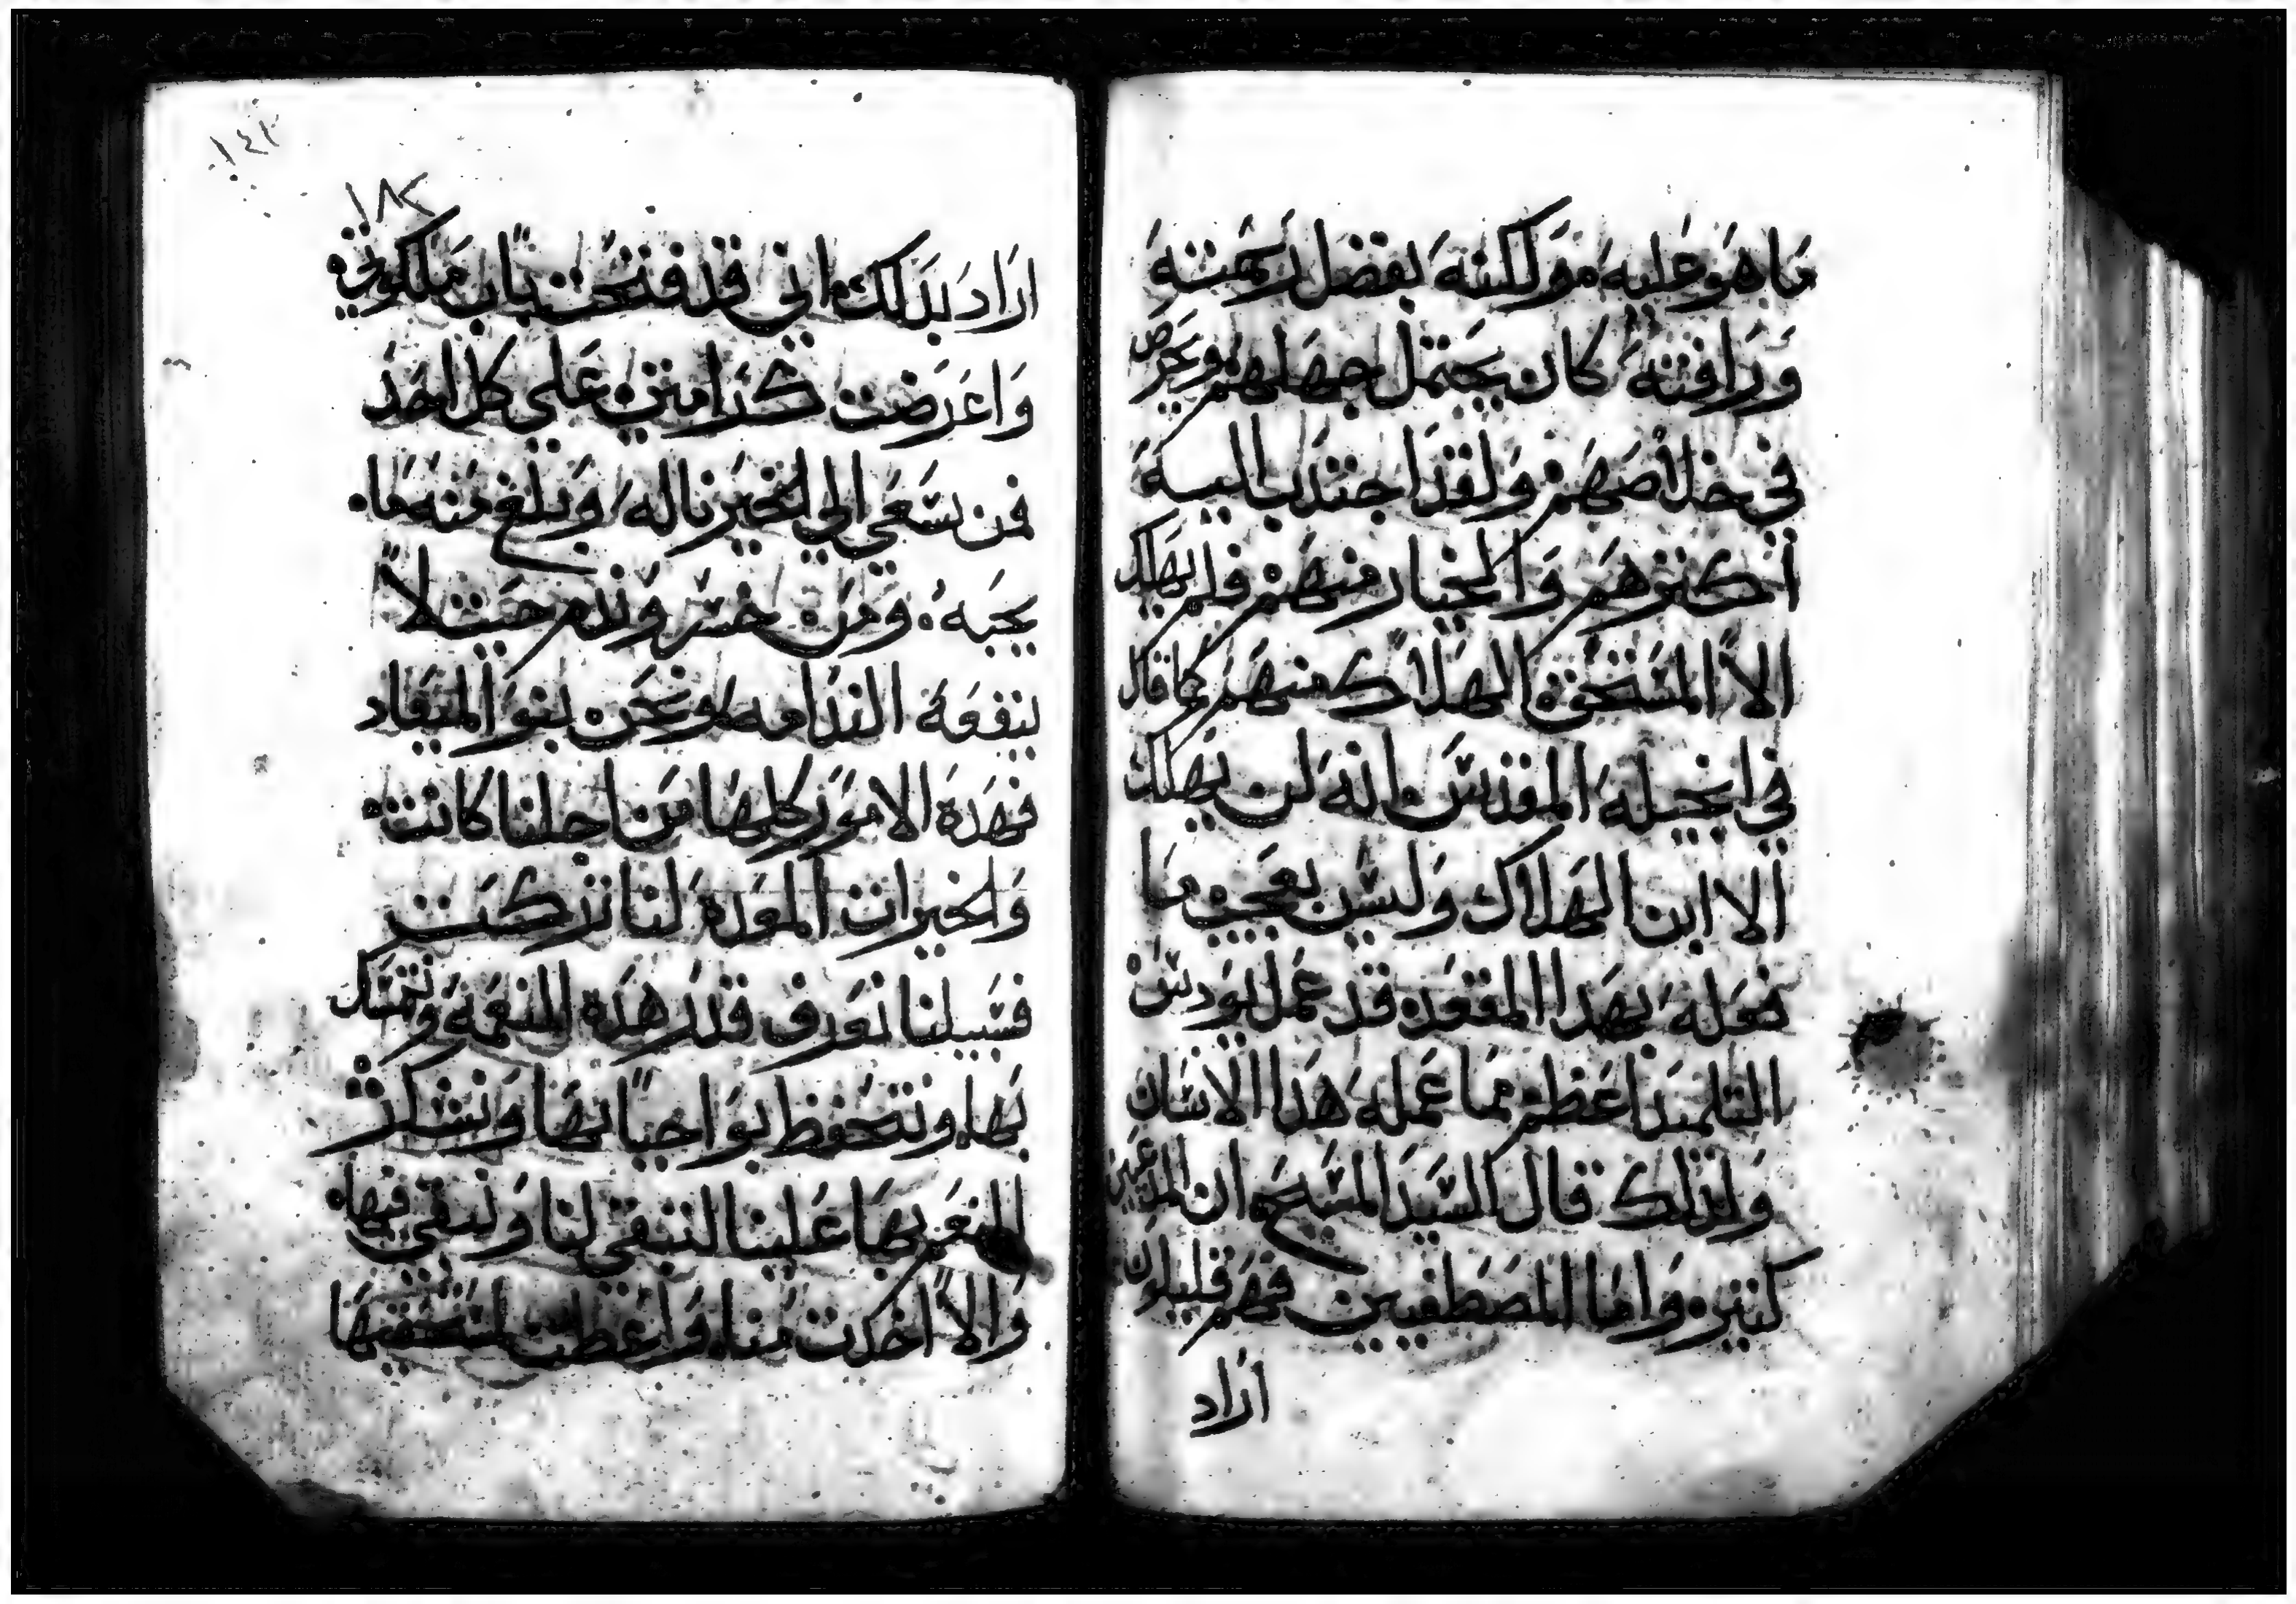 ما هو عليه ولكنه بفضل رحمته
ورافته كان يحتمل جهلهم ويحرص
في خلاصهم ولقد اجتدب اليه
اكثرهم والخيار منهم فلم يهلك
الا المستحق الهلاك منهم كما قال
في انجيله المقدس انه لن يهلك
الا ابن الهلاك وليس بعجب ما
فعله بهدا المقعد قد عمل يودس
التلميد اعظم مما عمله هدا الانسان
ولدلك قال السيد المسيح ان المدعيين
كثير واما المصطفيين فهم قليلون
اراد
١٨٢
اراد بدلك اني قد فتحت باب ملكوتي
واعرضت كرامتي على كل احد
فمن سعى الى الخير ناله وبلغ منه ما
يحبه ومن خسر وندم حيث لا
ينفعه الندامه ونحن بنو الميعاد
فهده الامور كلها من اجلنا كانت
والخيرات المعده لنا تركت
فسبيلنا نعرف قدر هده النعمة ونتمسك
بها ونتحفظ بواجباتها ونشكر
المنعم بها علينا لتبقى لنا ونبقى فيها
والا اخدت منا واعطيت لمستحقيها